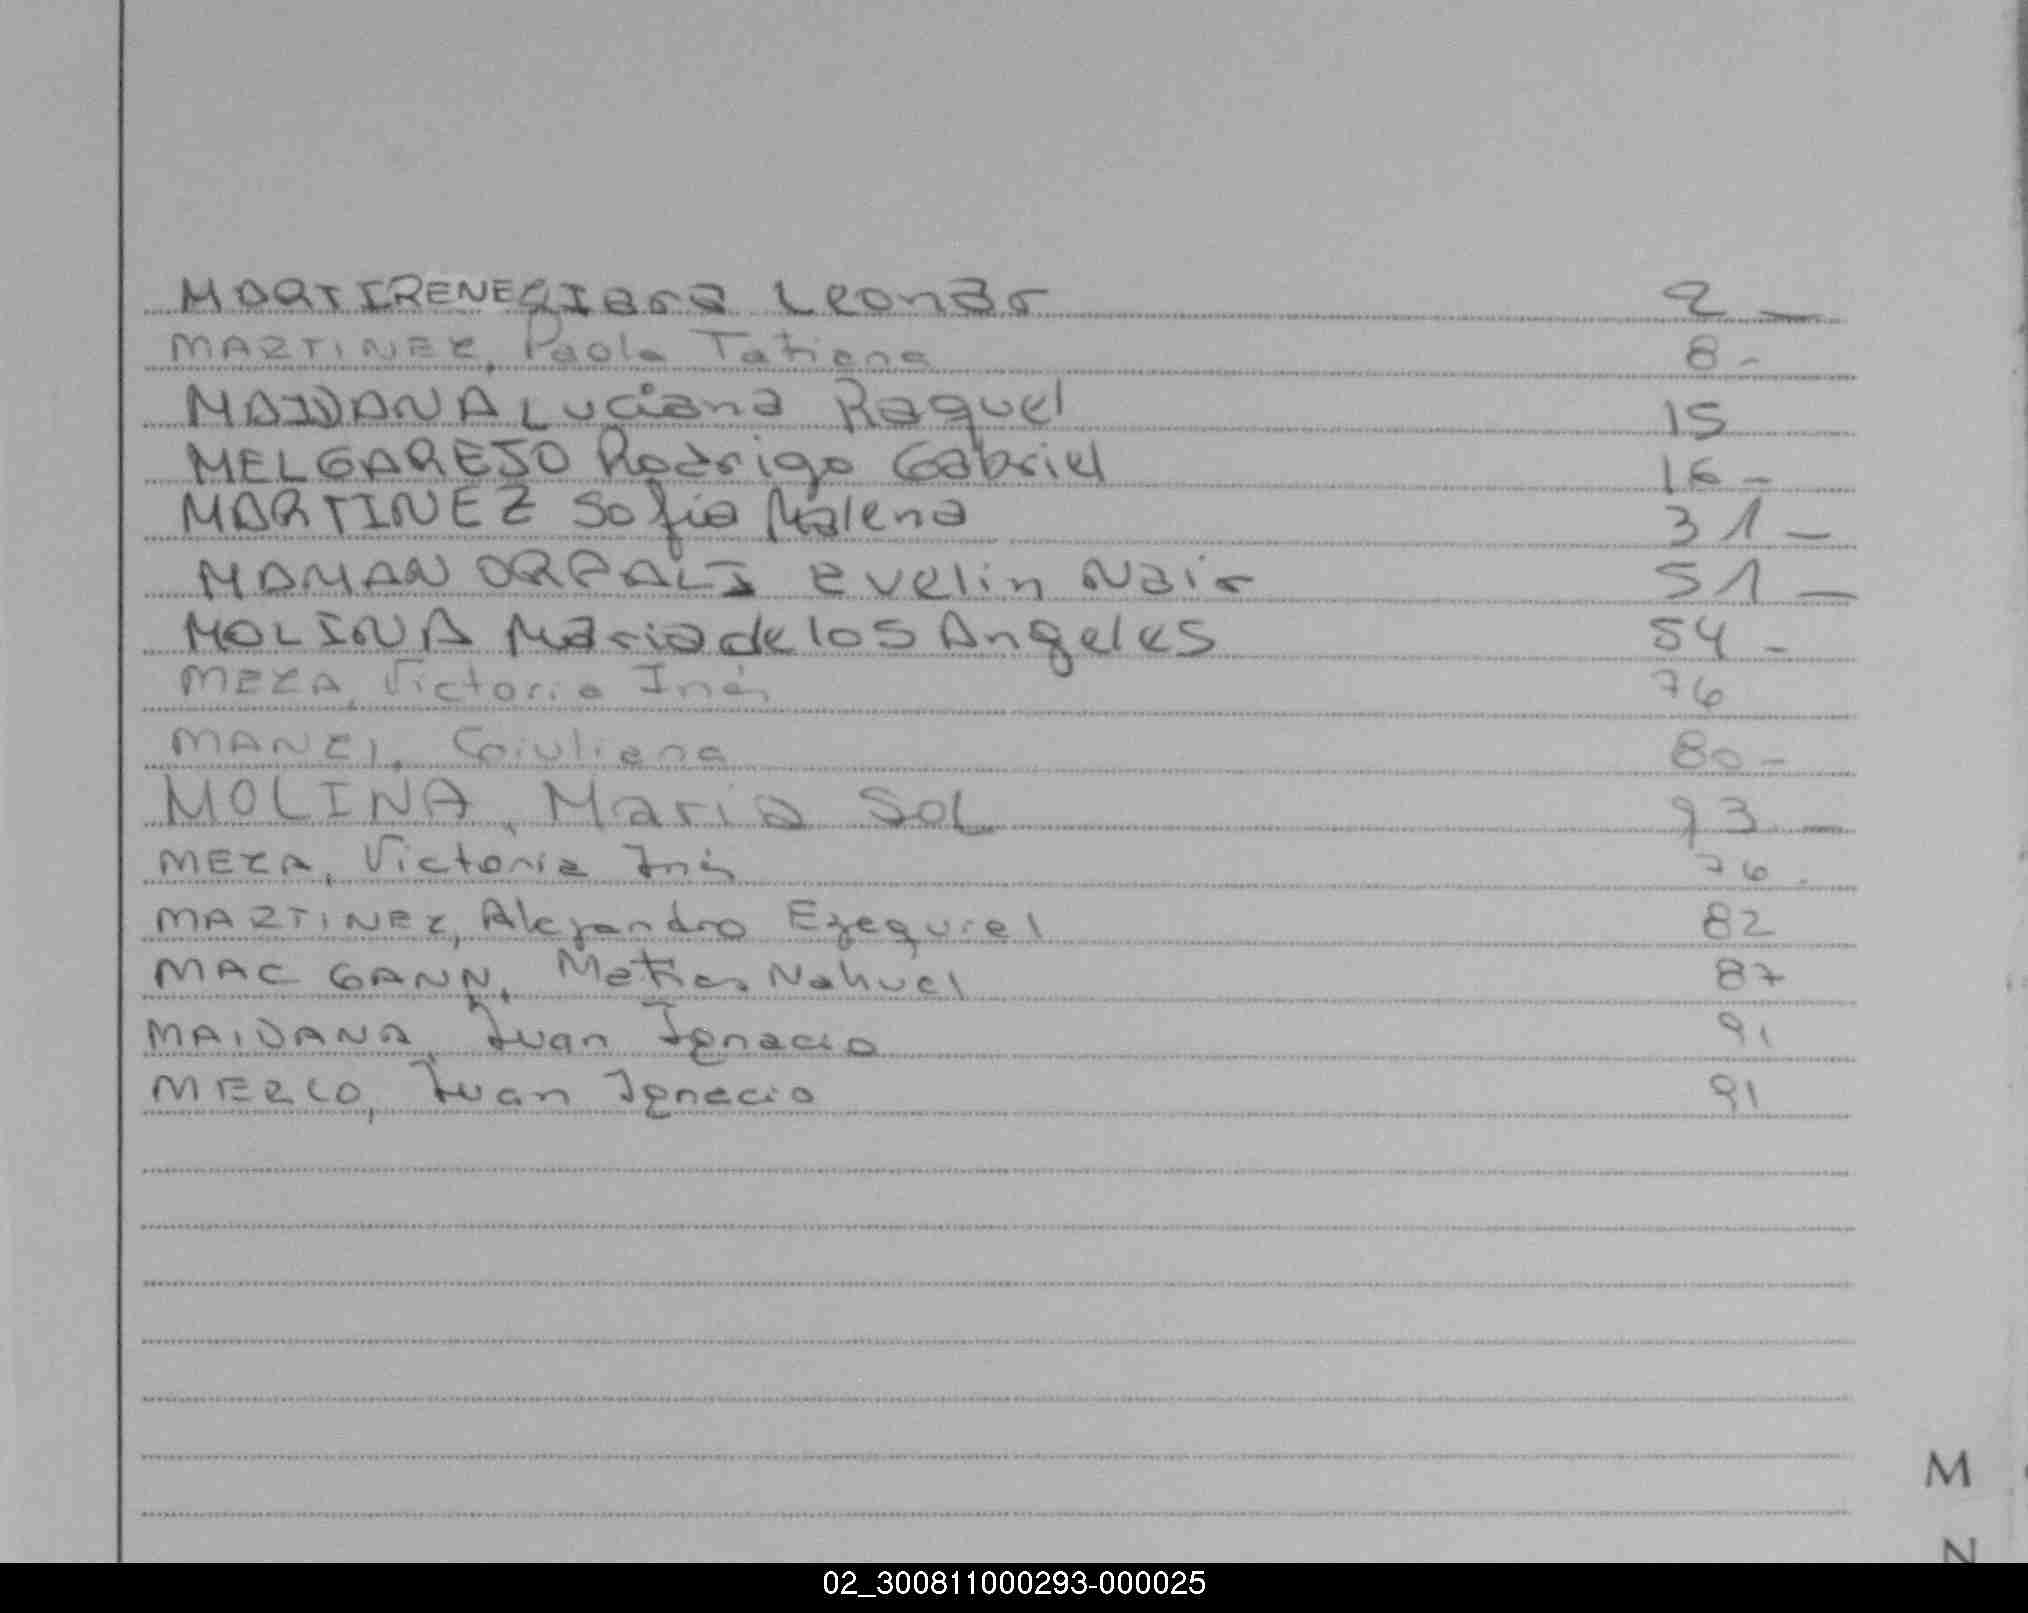 MARTIRENE Giara Leonar 2 —
MARTINEZ, Paola Tatiana 8 -
MAIDANA Luciana Raquel 15
MELGAREJO Rodrigo Gabriel 16 -
MARTINEZ Sofia Malena 31 —
MAMAN ORPALI Evelin Nair 51 —
MOLINA Maria de los Angeles 54 -
MEZA, Victoria Inés 76
MANZI, Giuliana 80 -
MOLINA, Maria SOL 93 —
MEZA, Victoria Inés 76.
MARTINEZ, Alejandro Ezequiel 82
MAC GANN, Matias Nahuel 87
MAIDANA, Juan Ignacio 91
MERLO, Juan Ignacio 91
M
N
02_300811000293-000025